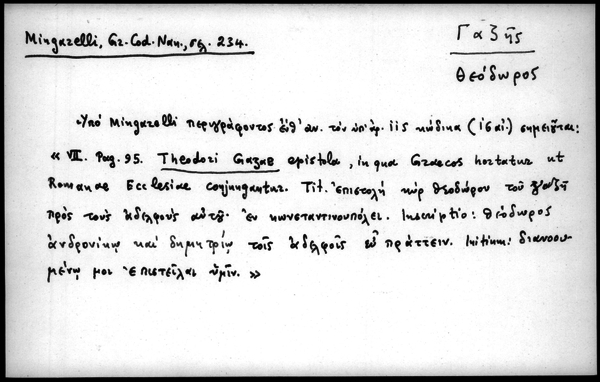 Mingarelli, Gr. Cod. Nan., σελ. 234.
Γαζῆς
Θεόδωρος
Ὑπὸ Mingarelli περιγράφοντος τὸν ὑπ' ἀρ. κώδικα (ις αἰ.) σημειοῦται:
« VII. Pag. 95. Theodori Gazae epistola, in qua Graecos hortatur ut
Romanae Ecclesiae conjungantur. Tit. Ἐπιστολὴ κὺρ Θεοδώρου τοῦ γαζῆ
πρὸς τοὺς ἀδελφοὺς αὐτοῦ ἐν κωνσταντινουπόλει. Inscriptio: θεόδωρος
ἀνδρονίκῳ καὶ δημητρίῳ τοῖς ἀδελφοῖς εὖ πράττειν. Initium: διανοου
μένῳ μοι ἐπιστεῖλαι ὑμῖν. »